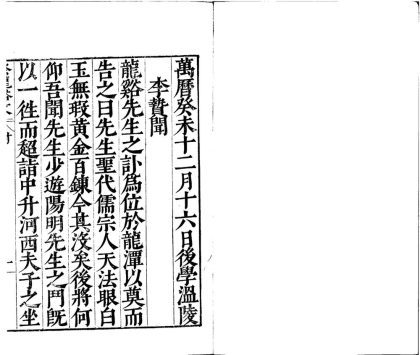 萬曆癸未十二月十六日後學溫陵
李贄聞
龍谿先生之訃爲位於龍潭以奠而
告之曰先生聖代儒宗人天法眼白
玉無瑕黃金百鍊今其沒矣後將何
仰吾聞先生少遊陽明先生之門旣
以一徃而超詣中升河西夫子之坐